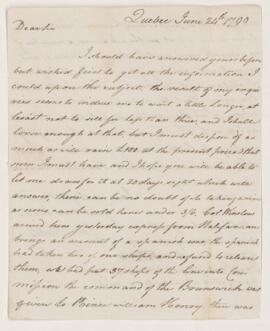 Quebec June 24th 1790
Dear Sir
I should have answered yours before
but wished first to get all the information I
could upon the subject, the result of my enquiries
seems to induce us to want a little longer, at
least not to sell for less than three, and I shall
have enough at that, but I must dispose of as
much as will raise £100 at the present price, that
sum I must have and I hope you will be able to
let me draw for it at 20 days sight which will
answer, there can be no doubt of its taking
as none can be sold here under 3/6. Col. Winslow
arrived here yesterday express from Halifax, and
brings an account of a spanish war, the spanish
had taken two of our ships, and refused to release
them, we had put 37 ships of the line into Com-
mission the command of the Brunswick was
given to Prince William Henry there was